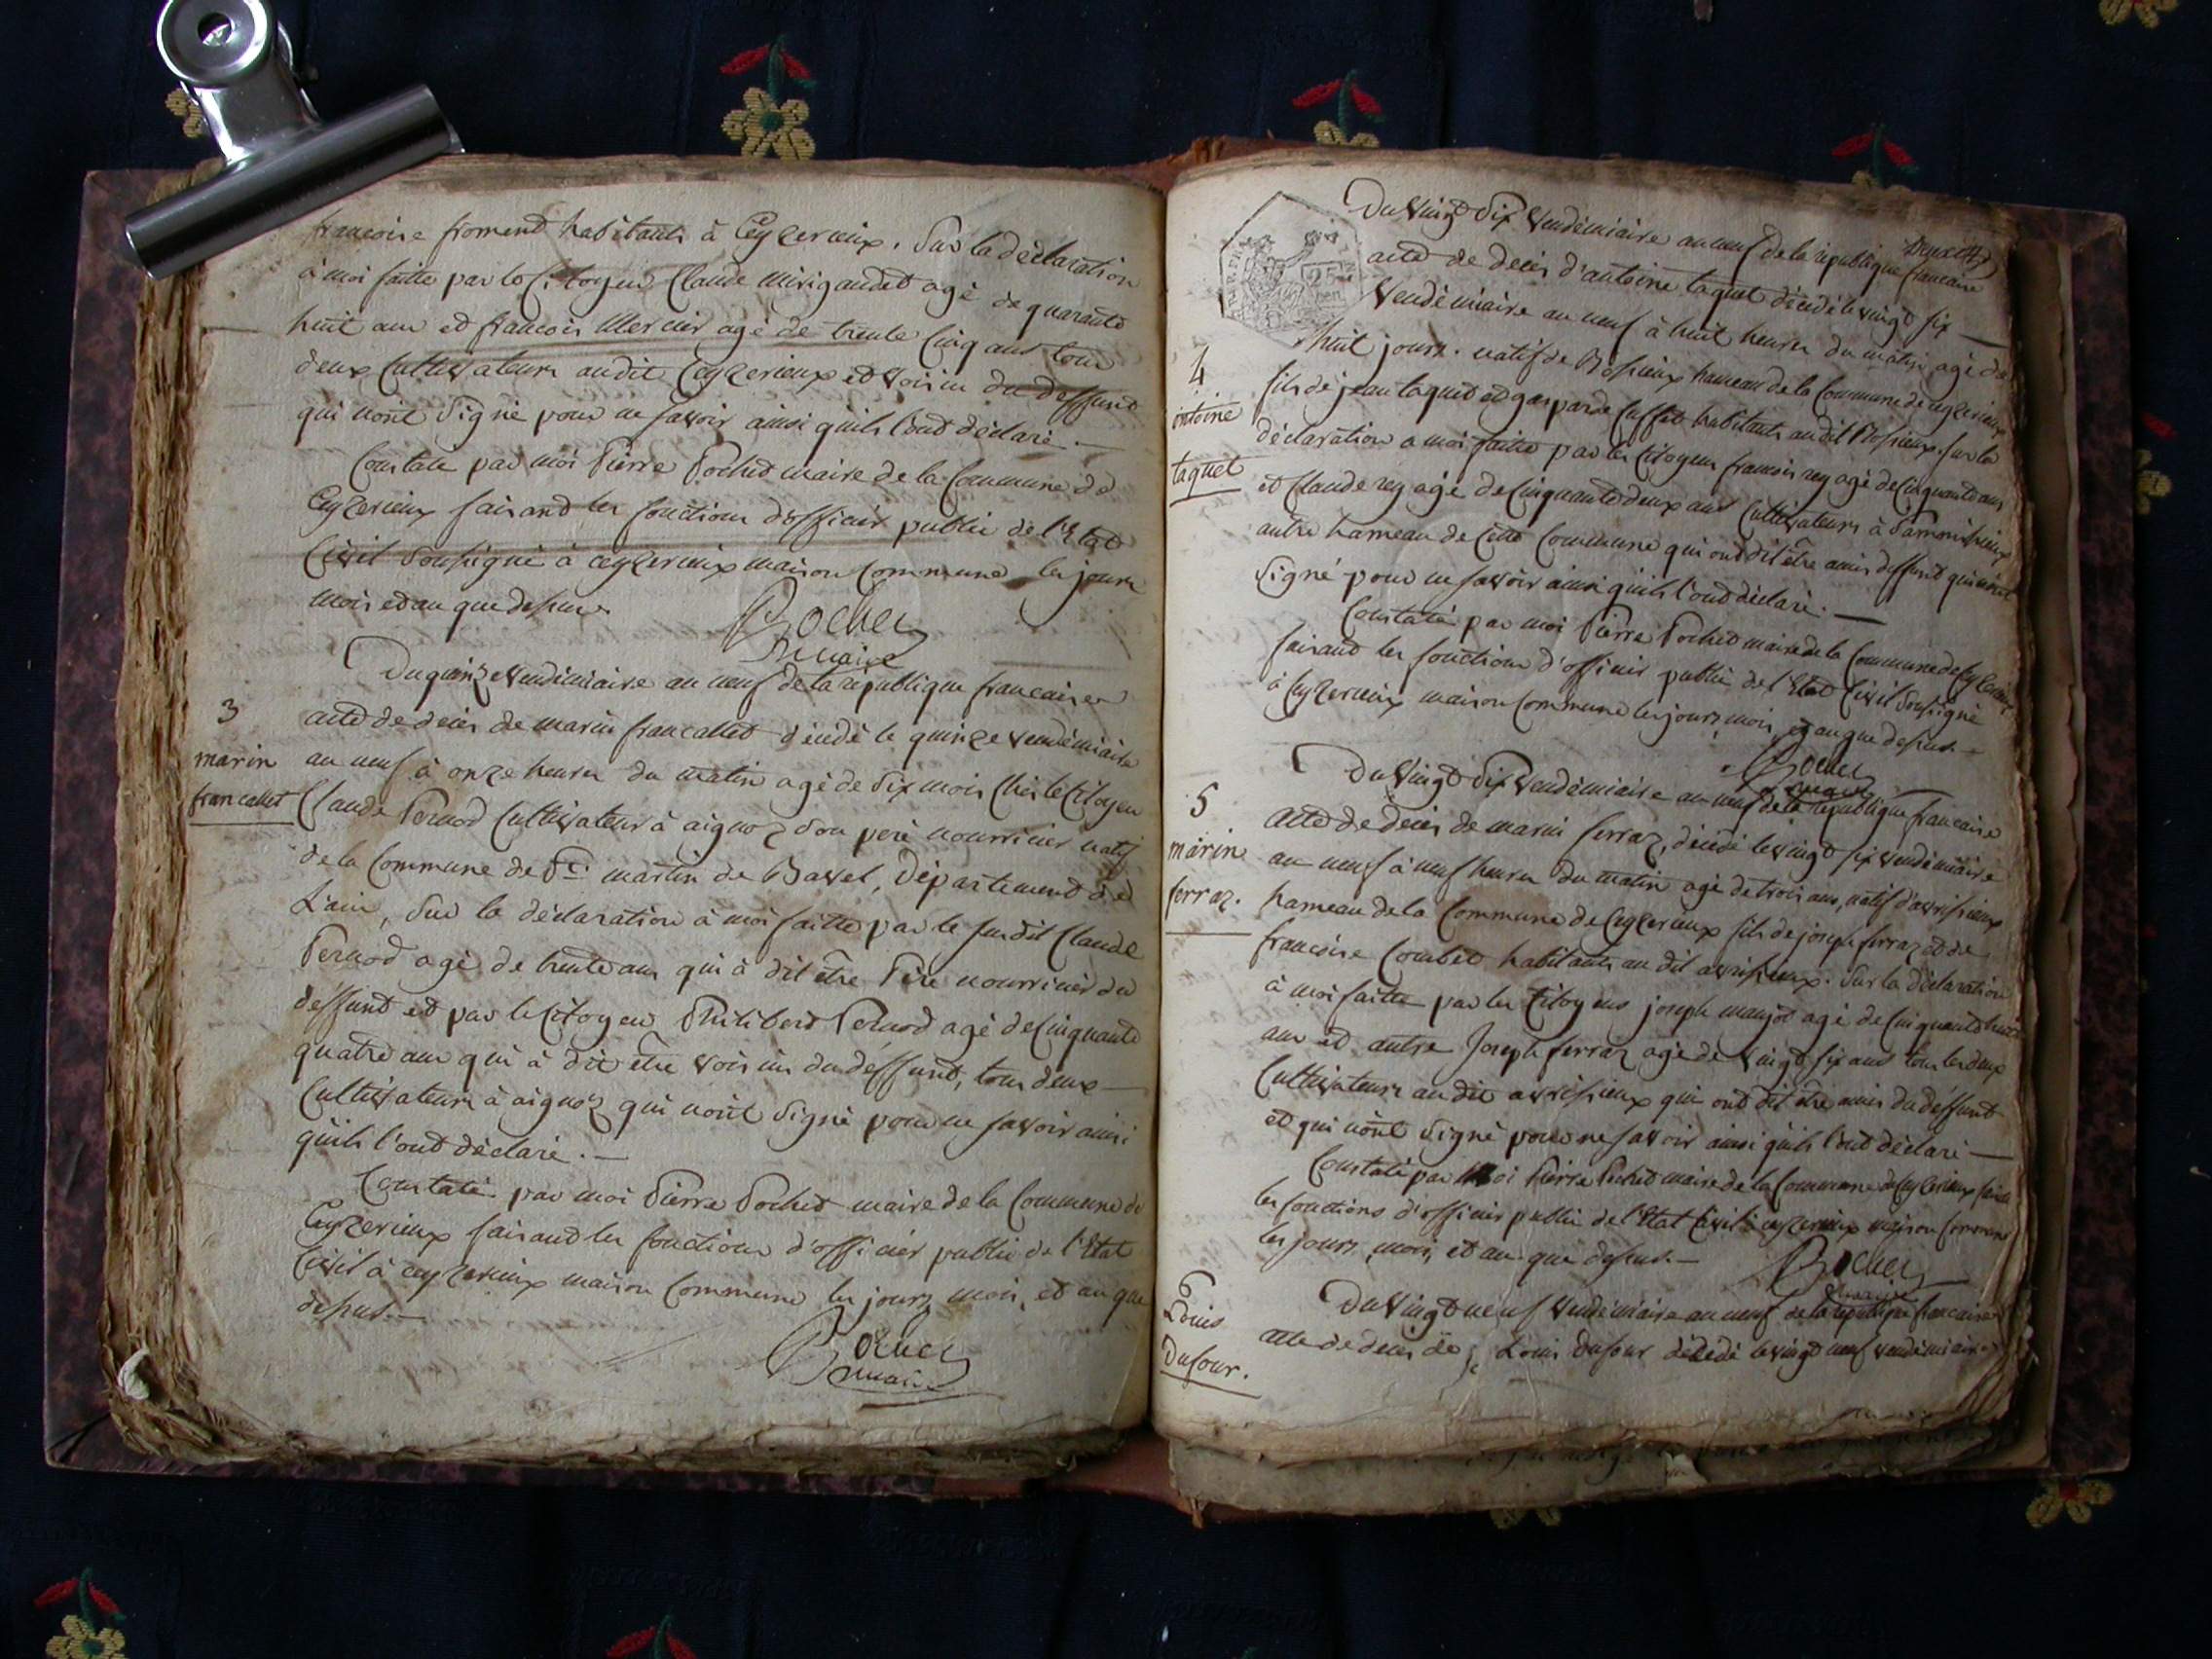 francoise froment habitants à Ceyzerieux. Sur la déclaration
à moi faitte par les Citoyens Claude mirigaudet agé de quarante
huit ans et francois Mercier agé de trente Cinq ans tous
deux Cultivateurs audit Ceyzerieux et voisin du deffunt
qui n'ont Signé pour ne savoir ainsi quils l'ont déclaré.
Constaté par moi Pierre Pochet maire de la Commune de
Ceyzerieux faisant les fonctions d'officier public de l'Etat
Civil Soussigné à ceyzerieux maison Commune les jours
mois et an que dessus.
Pochet
maire
Du quinze vendémiaire an neuf de la république francaise
3
acte de décès de marin francallet décédé le quinze vendémiaire
marin
an neuf à onze heures du matin agé de Six mois Chés le Citoyen
francallet
Claude Pernod Cultivateur à aignoz Son pere nourricier natif
de la Commune de St. martin de Bavel, Département de
L'ain, Sur la déclaration à moi faitte par le susdit Claude
Pernod agé de trente ans qui à dit être Pere nourricier du
deffunt et par le Citoyen Philibert Pernod agé de Cinquante
quatre ans qui à dit être voisin du deffunt, tous deux
Cultivateurs à aignoz qui n'ont Signé pour ne savoir ainsi
quils l'ont déclaré.
Constaté par moi Pierre Pochet maire de la Commune de
Ceyzerieux faisant les fonctions d'officier public de l'Etat
Civil à ceyzerieux maison Commune les jours mois, et an que
dessus.
Pochet
maire
Du Vingt Six Vendémiaire an neuf de la république francaise
acte de décès d'antoine taquet décédé le vingt six
Vendémiaire an neuf à huit heures du matin agé de
4
huit jours. natif de Rossieux hameau de la Commune de ceyzerieux
antoine
fils de jean taquet et gasparde Cuffet habitants au dit Rossieux. Sur la
déclaration a moi faitte par les Citoyens francois rey agé de Cinquante ans
taquet
et Claude rey agé de Cinquante deux ans Cultivateurs à
autre hameau de Cette Commune qui ont dit être amis deffunt qui n'ont
Signé pour ne savoir ainsi quils l'ont déclaré.
Constaté par moi Pierre Pochet maire de la Commune de Ceyzerieux
faisant les fonctions d'officier public de l'Etat Civil Soussigné
à Ceyzerieux maison Commune les jours, mois, et an que dessus.
Pochet
maire
Du Vingt Six Vendémiaire an neuf de la république francaise
5
Acte de décès de marin ferraz, décédé le vingt six vendémiaire
marin
an neuf à neuf heures du matin agé de trois ans, natif d'avrissieux
ferraz.
hameau de la Commune de Ceyzerieux fils de joseph ferraz et de
francoise Combet habitants au dit avrissieux. Sur la déclaration
à moi faitte par les Citoyens joseph manjot agé de Cinquante huit
ans et autre Joseph ferraz agé de vingt six ans tous les deux
Cultivateurs au dit avrissieux qui ont dit être amis du deffunt
et qui n'ont Signé pour ne savoir ainsi quils l'ont déclaré
Constaté par Moi Pierre Pochet maire de la Commune de Ceyzerieux
les fonctions d'officier public de l'Etat Civil à ceyzerieux maison Commune
les jours, mois, et an que dessus.
Pochet
maire
6
Du Vingt neuf Vendémiaire an neuf de la république francaise
Louis
acte de décès de Louis Dufour décédé le vingt neuf vendémiaire
Dufour.